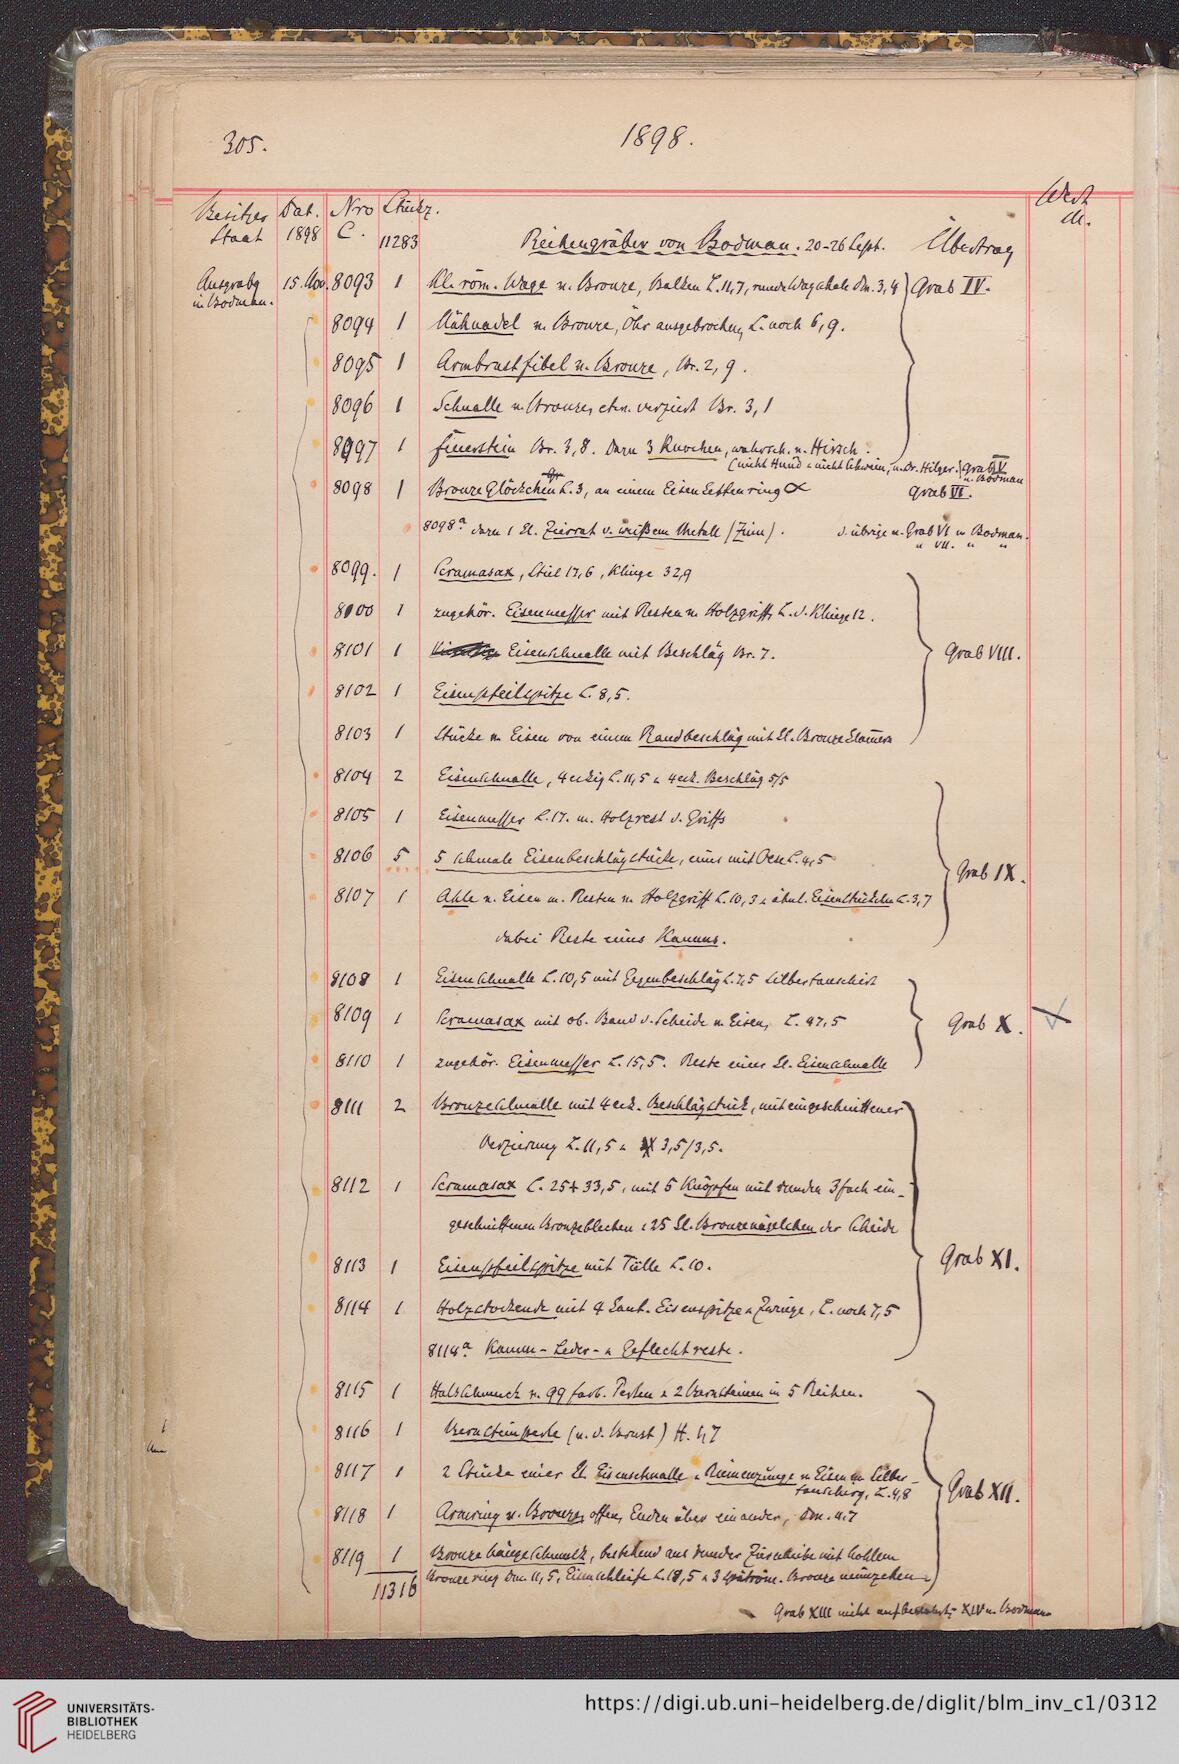 305.
1898.
Besitzer Dat. Nro Stückz. Wert
Staat 1898 C. 11283 Reihengräber von Bodman. 20-26 Sept. Übertrag M.
Ausgrabg 15. Nov. 8093 1 Kl. röm. Wage v. Bronze, Balken L. 11,7, runde Wagschale Dm. 3,4 Grab IV.
in Bodman.
8094 1 Nähnadel v. Bronze, Öhr ausgebrochen, L. noch 6,9.
8095 1 Armbrustfibel v. Bronze, Br. 2,9.
8096 1 Schnalle v. Bronze, etw. verziert Br. 3,1
8097 1 Feuerstein Br. 3,8. Dazu 3 Knochen, wahrsch. v. Hirsch.
(nicht Hund u. nicht Schwein, n. Dr. Hilger.) Grab V v. Bodman
8098 1 Bronze Glöckchen L. 3, an einem Eisenkettenring Grab VI.
8098a. dazu 1 kl. Zierrat v. weißem Metall (Zinn). d. übrige v. Grab VI v. Bodman.
" VII. " "
8099. 1 Scramasax, Stiel 17,6, Klinge 32,9
8100 1 zugehör. Eisenmesser mit Resten v. Holzgriff, L. d. Klinge 12.
8101 1 Eisenschnalle mit Beschläg Br. 7. Grab VIII.
8102 1 Eisenpfeilspitze L. 8,5.
8103 1 Stücke v. Eisen von einem Randbeschläg mit kl. Bronzeklam̄ern
8104 2 Eisenschnalle, 4eckig L. 11,5 u. 4eck. Beschläg 5/5
8105 1 Eisenmesser L. 17. m. Holzrest d. Griffs
8106 5 5 schmale Eisenbeschlägstücke, eines mit Oese L. 4,5 Grab IX.
8107 1 Ahle v. Eisen m. Resten v. Holzgriff L. 10,3 u. ähnl. Eisenstückchen L. 3,7
dabei Reste eines Kamms.
8108 1 Eisenschnalle L. 10,5 mit Gegenbeschläg L. 7,5 silbertauschirt
8109 1 Scramasax mit ob. Band d. Scheide v. Eisen, L. 47,5 Grab X.
8110 1 zugehör. Eisenmesser L. 15,5. Reste einer kl. Eisenschnalle
8111 2 Bronzeschnalle mit 4eck. Beschlägstück, mit eingeschnittener
Verzierung L. 11,5 u. 3,5/3,5.
8112 1 Scramasax L. 25+33,5, mit 5 Knöpfen mit runden 3fach ein-
geschnittenen Bronzeblechen u. 25 kl. Bronzenägelchen der Scheide
8113 1 Eisenpfeilspitze mit Tülle L. 10. Grab XI.
8114 1 Holzstockende mit 4 kant. Eisenspitze u. Zwinge, L. noch 7,5
8114a. Kamm- Leder- u. Geflechtreste.
8115 1 Halsschmuck v. 99 farb. Perlen u. 2 Bernsteinen in 5 Reihen.
8116 1 Bernsteinperle (v. d. Brust) H. 1,7
8117 1 2 Stücke einer kl. Eisenschnalle u. Riemenzunge v. Eisen m. Silber-
tauschirg, L. 4,8 Grab XII.
8118 1 Armring v. Bronze, offen, Enden über einander, Dm. 4,7
8119 1 Bronzehängeschmuck, bestehend aus runder Zierscheibe mit hohlem
11316 Bronzering Dm. 11,5, Eisenschleife L. 18,5 u. 3 spätröm. Bronzemünzchen
Grab XIII nicht aufbewahrt, XIV v. Bodman
UNIVERSITÄTS-
BIBLIOTHEK
HEIDELBERG
https://digi.ub.uni-heidelberg.de/diglit/blm_inv_c1/0312